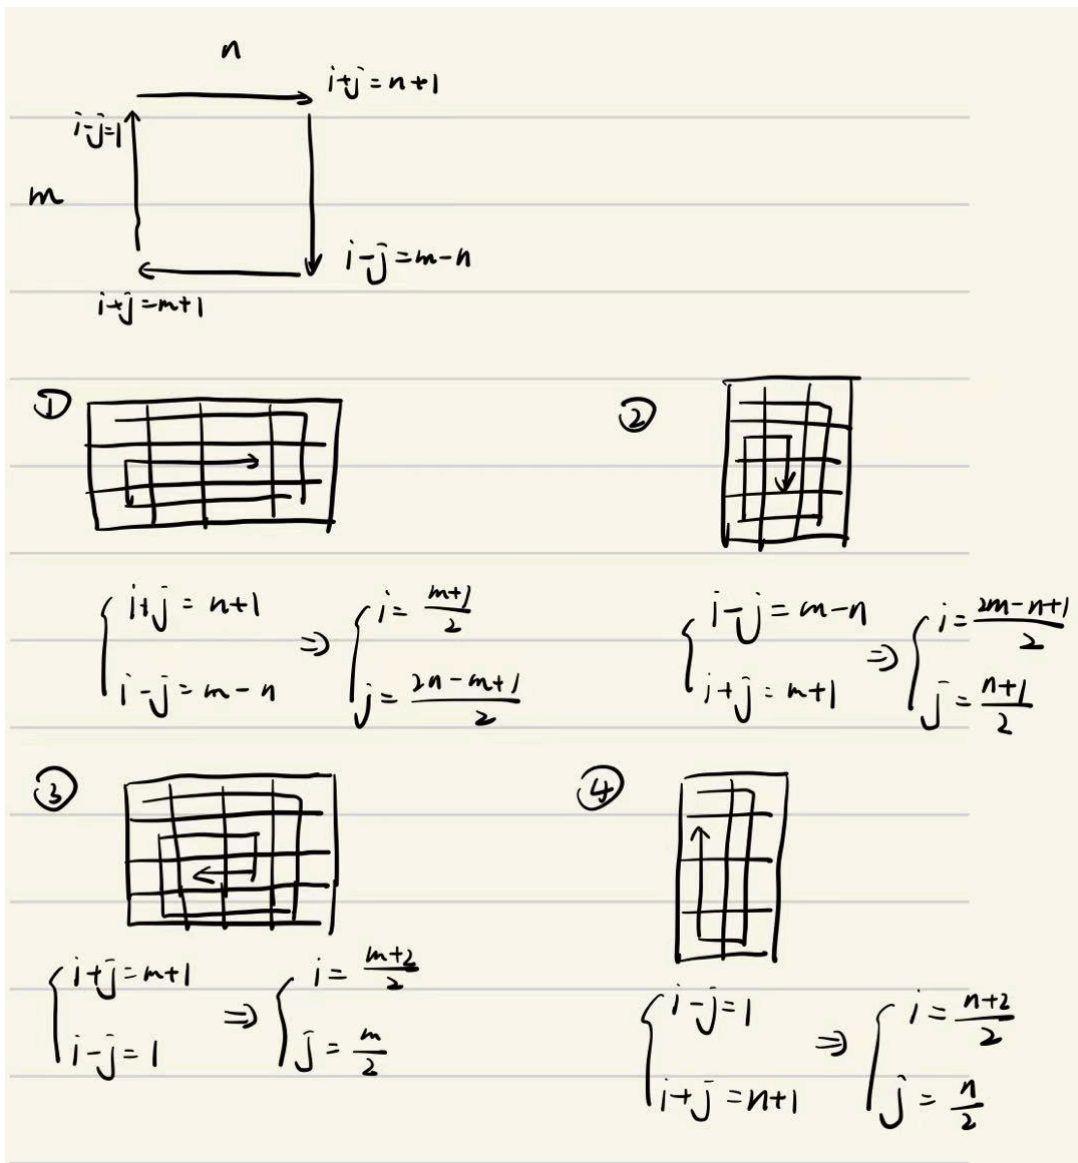 n
i+j=n+1
i-j=1
m
i-j=m-n
i+j=m+1
①
②
{ i+j=n+1
i-j=m-n
⇒ { i=\frac{m+1}{2}
j=\frac{2n-m+1}{2}
{ i-j=m-n
i+j=m+1
⇒ { i=\frac{2m-n+1}{2}
j=\frac{n+1}{2}
③
④
{ i+j=m+1
i-j=1
⇒ { i=\frac{m+2}{2}
j=\frac{m}{2}
{ i-j=1
i+j=n+1
⇒ { i=\frac{n+2}{2}
j=\frac{n}{2}